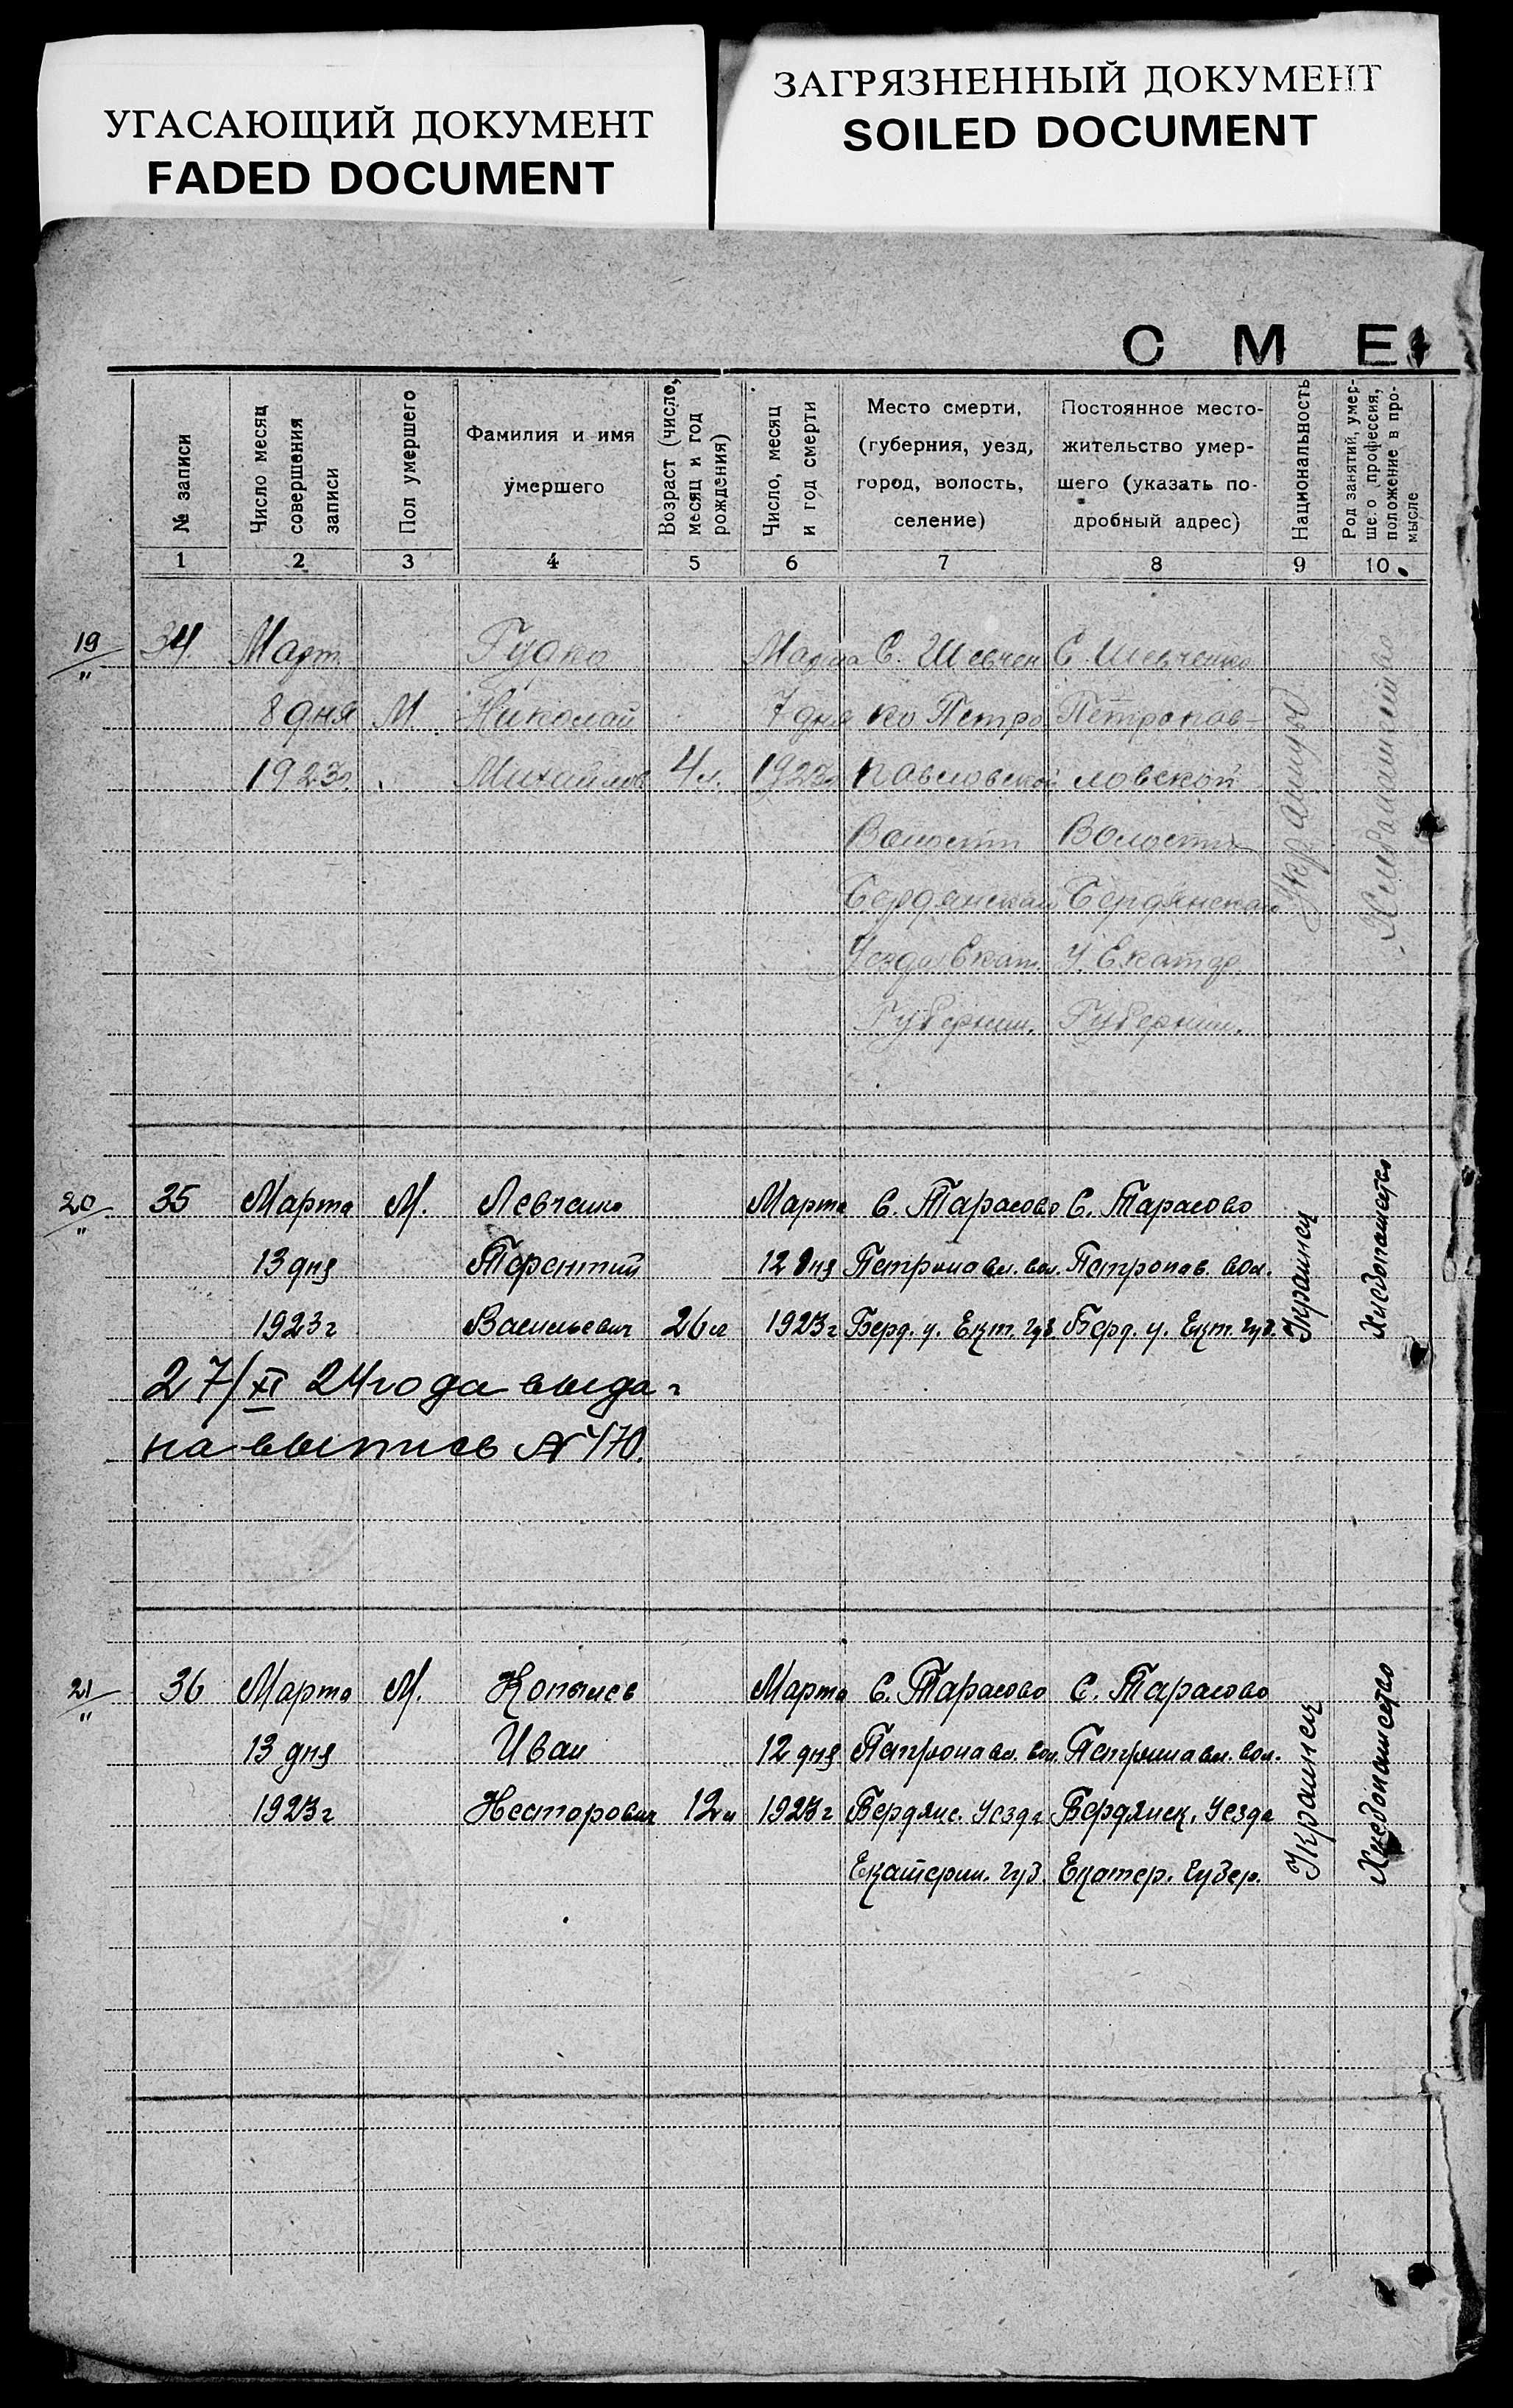 УГАСАЮЩИЙ ДОКУМЕНТ
FADED DOCUMENT
ЗАГРЯЗНЕННЫЙ ДОКУМЕНТ
SOILED DOCUMENT
С М Е
№ записи
Число месяц совершения записи
Пол умершего
Фамилия и имя умершего
Возраст (число, месяц и год рождения)
Число, месяц и год смерти
Место смерти, (губерния, уезд, город, волость, селение)
Постоянное местожительство умершего (указать подробный адрес)
Национальность
Род занятий, умершего профессия, положение в промысле
1 2 3 4 5 6 7 8 9 10
19 34 Март Гудко Марта С. Шевчен С. Шевченко
" 8 дня М Николай 7 дня ко Петро Петропав-
1923г. Михайлов 4 л. 1923г павловской ловской
Волости Волости
Бердянской Бердянского
Уезда Екат. У. Екатер
Губернии. Губернии.
Украинец
Хлебопашество
20 35 Марта М. Левченко Марта С. Тарасово С. Тарасово
" 13 дня Терентий 12 дня Петропавл. вол. Петропав. вол.
1923г Васильевич 26 л 1923г Берд. у. Ект. губ. Берд. у. Ект. губ.
Украинец
Хлебопашество
27/XI 24 года выда-
на выпись № 470.
21 36 Марта М. Копылев Марта С. Тарасово С. Тарасово
" 13 дня Иван 12 дня Петропавл. вол. Петропавл. вол.
1923г Несторович 12 л 1923г Бердянс. Уезда Бердянск. Уезда
Екатерин. губ. Екатер. губер.
Украинец
Хлебопашество